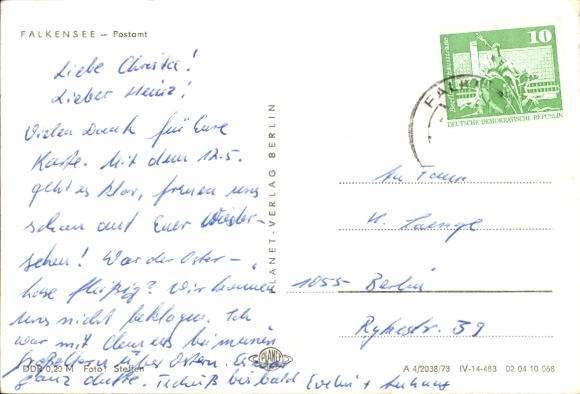 FALKENSEE — Postamt
Liebe Christa!
Lieber Heinz!
Vielen Dank für Eure
Karte. Mit dem 12.5.
geht es klar, freuen uns
schon auf Euer Wieder-
sehen! War der Oster-
hase fleißig? Wir können
uns nicht beklagen. Ich
war mit bei meinen
Großeltern über Ostern.
ganz dufte. Tschüß bis bald Evelin +
DDR 0,20 M Foto: Steffen
PLANET-VERLAG BERLIN
PLANET
10
DEUTSCHE DEMOKRATISCHE REPUBLIK
FALKEN
An Fam.
H. Lange
1055 Berlin
Rykestr. 39
A 4/2038/73 IV-14-483 02 04 10 068